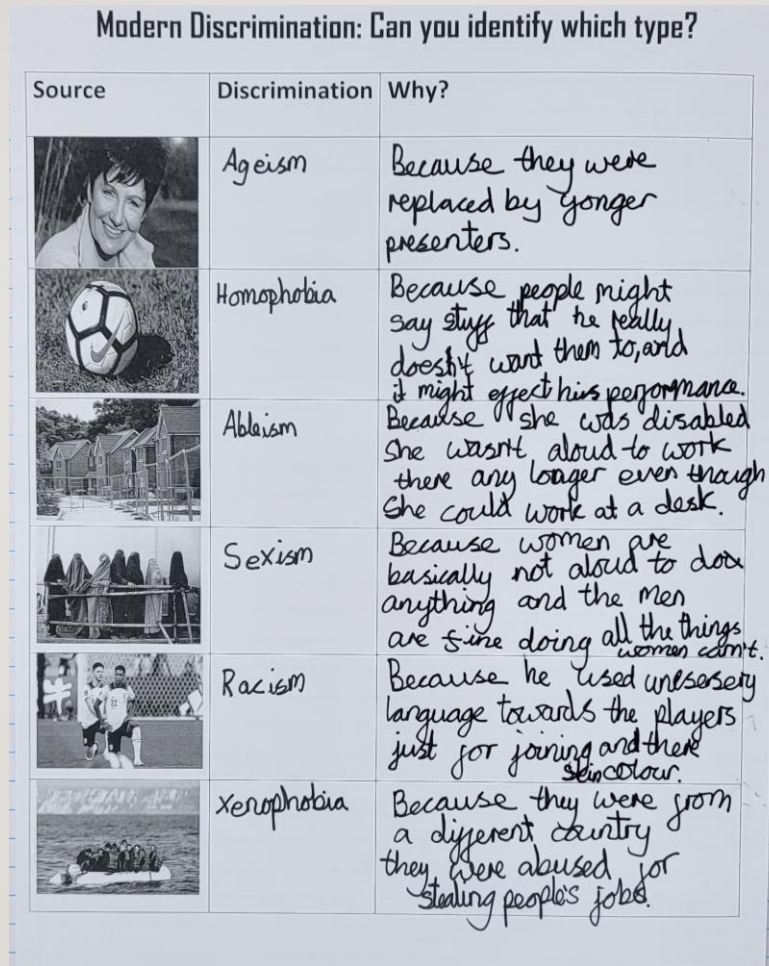 Modern Discrimination: Can you identify which type?
Source
Discrimination
Why?
Ageism
Because they were
replaced by yonger
presenters.
Homophobia
Because people might
say stuff that he really
doesn't want them to, and
it might effect hiis performance.
Ableism
Because she was disabled
she wasn't aloud to work
there any longer even though
she could work at a desk.
Sexism
Because women are
basically not aloud to do
anything and the men
are fine doing all the things
women can't.
Racism
Because he used unesersery
language towards the players
just for joining and there
skin colour.
Xenophobia
Because they were from
a different country
they were abused for
stealing people's jobs.